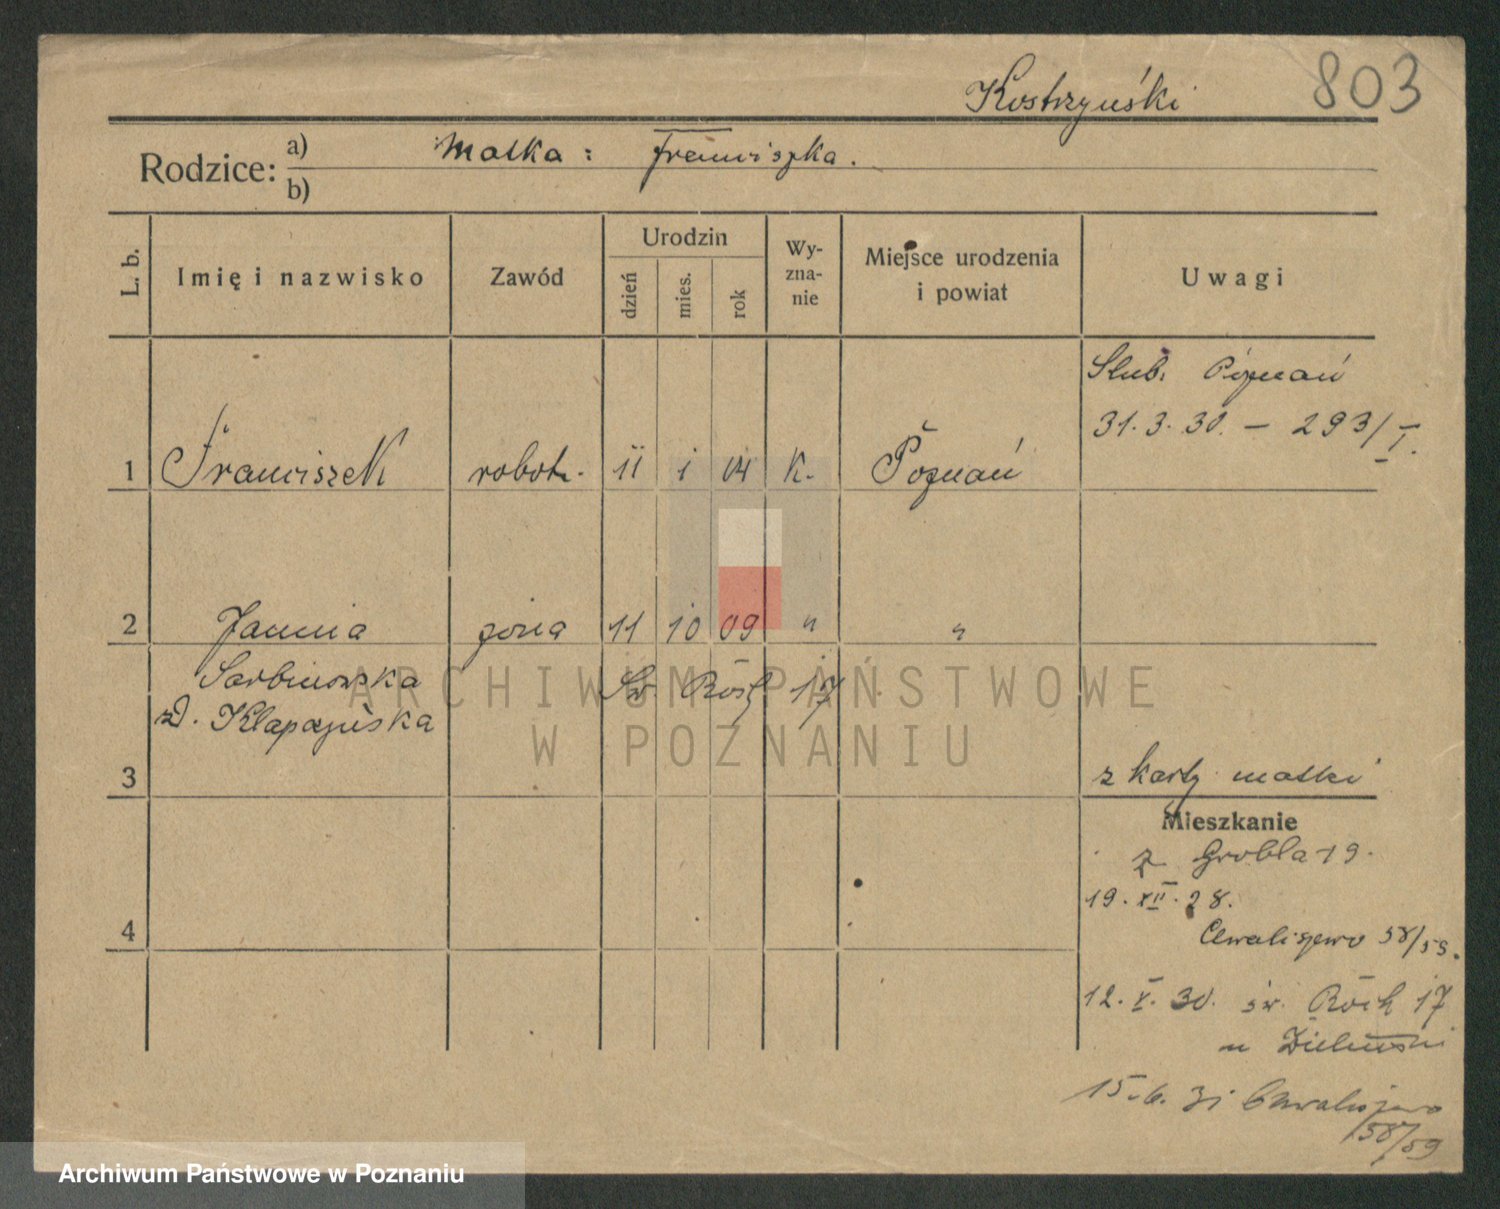 Kostrzyński 803
Rodzice: a) Matka: Franciszka.
b)
L. b. Imię i nazwisko Zawód Urodzin dzień mies. rok Wy-zna-nie Miejsce urodzenia i powiat Uwagi
Ślub. Poznań
31. 3. 30. – 293/I.
1 Franciszek robotn. 11 1 04 K. Poznań
2 Janina żona 11 10 09 " "
Sarbinowska Św Roch 17
zd. Kłapczyńska
3 z karty matki
Mieszkanie
z Grobla 19.
19. XII. 28.
4 Chwaliszewo 58/59.
12. V. 30. św. Roch 17
u Zieliński
15. 6. 31 Chwaliszewo
58/59
ARCHIWUM PAŃSTWOWE
W POZNANIU
Archiwum Państwowe w Poznaniu